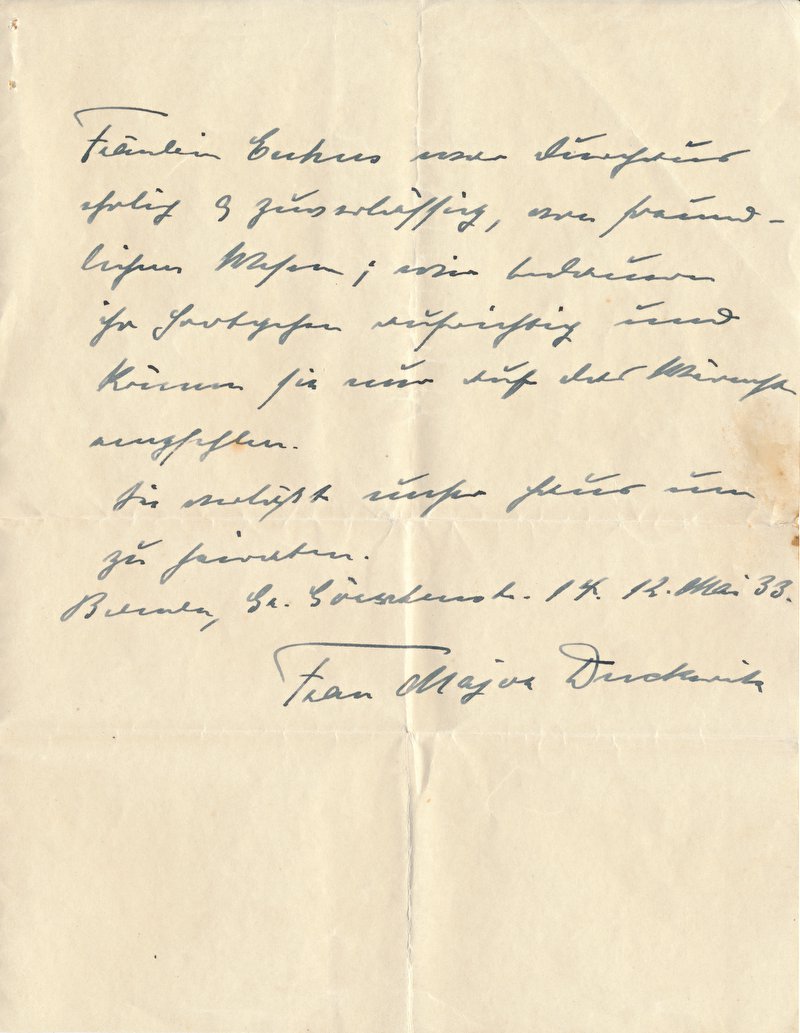 Fräulein Enkus war durchaus
ehrlich & zuverlässig, von freund-
lichem Wesen; wir bedauern
ihr Fortgehen aufrichtig und
können sie nur auf das Wärmste
empfehlen.
Sie verläßt unser Haus um
zu heiraten.
Bremen, Gr. 14. 12. Mai 33.
Frau Major Duckwitz